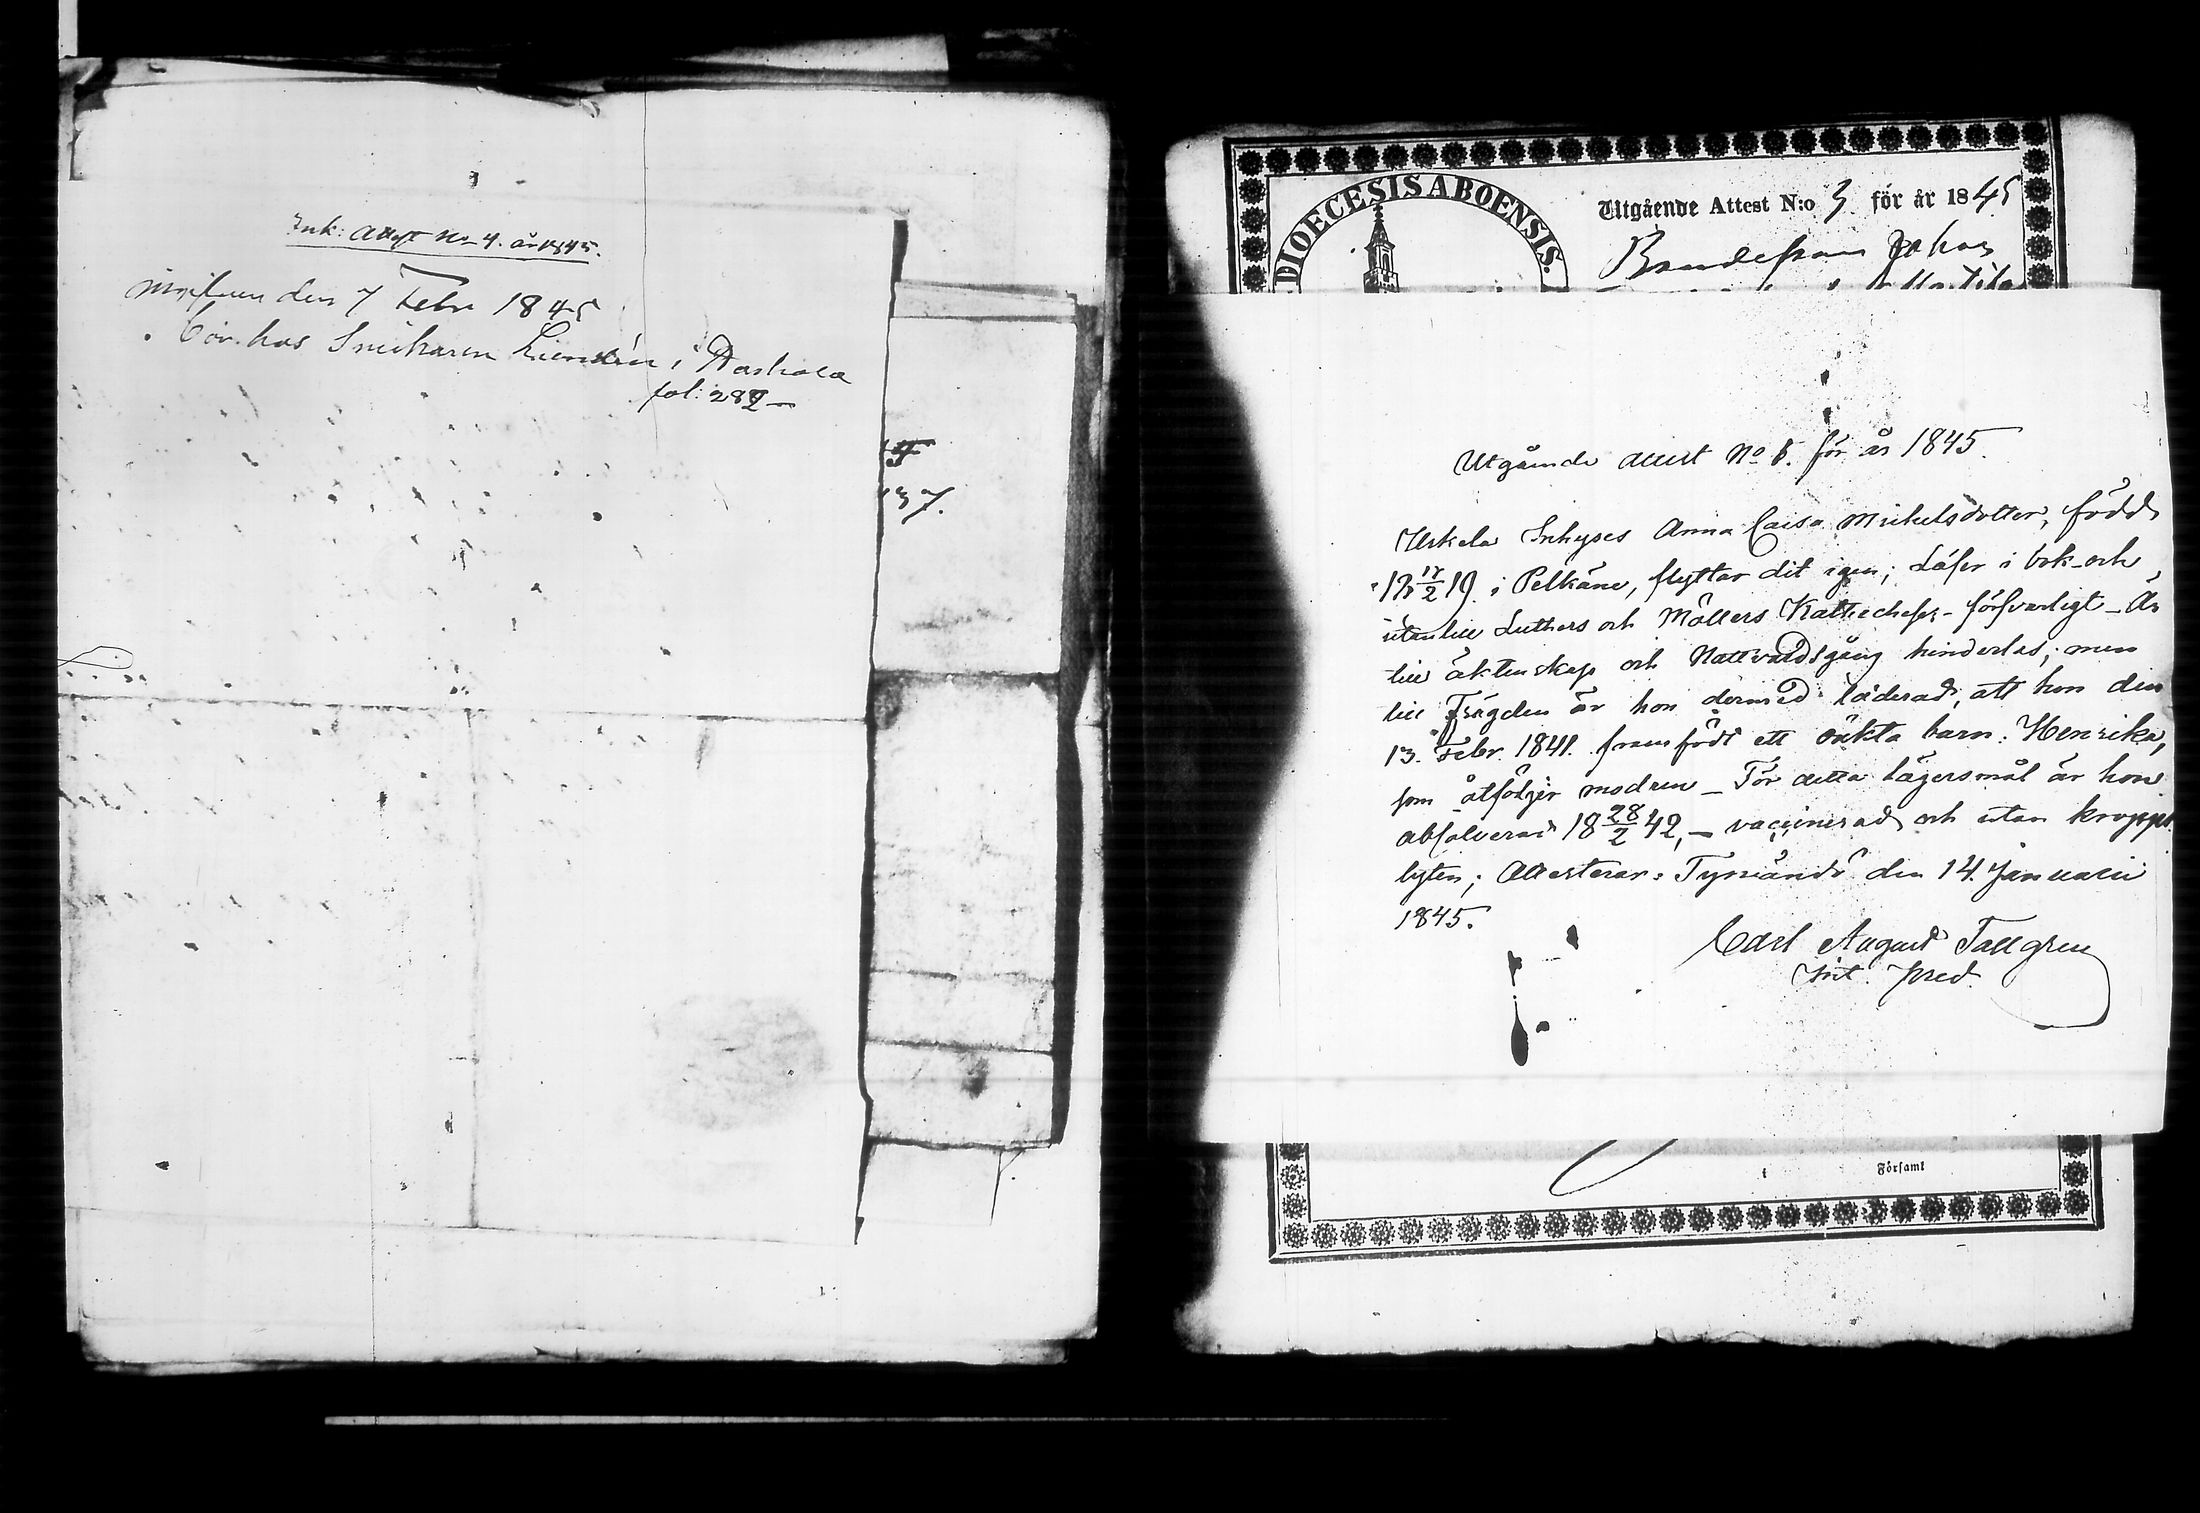 Ink: Attest No 4. år 1845.
den 7 Febr 1845
bor hos Snickaren i
fol: 282
37.
DIOECESIS ABOENSIS.
Utgående Attest N:o 3 för år 1845
Bondesonen Johan
Utgående attest No 8. för år 1845.
Uskela Inhyses Anna Caisa Michelsdotter, född
i Pelkäne, flyttar dit igen; Läser i bok och
utan till Luthers och Möllers Kattecheser försvarligt – Är
till äktenskap och Nattvardsgång hinderlös; men
till frägden är hon dermed läderad, att hon den
13. Febr. 1841. framfödt ett oäkta barn: Henrika,
som åtföljer modren – För detta lägersmål är hon
absolverad 18 28/2 42, – vaccinerad och utan kropps
lyten; Attesterar: Tyrvändö den 14. Januarii
1845.
Carl August Tallgren
Vict. Pred.
Församl